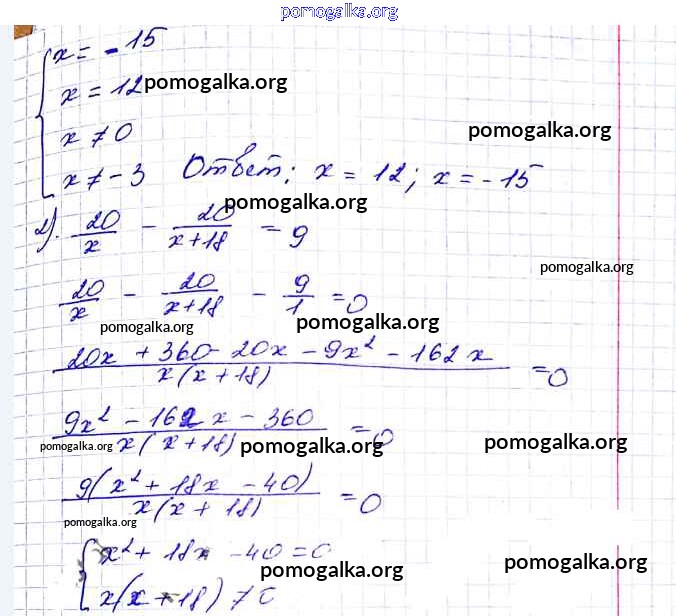 pomogalka.org
x = -15
x = 12 pomogalka.org
x ≠ 0 pomogalka.org
x ≠ -3 Ответ: x = 12; x = -15
pomogalka.org
2). 20/x - 20/(x+18) = 9
pomogalka.org
20/x - 20/(x+18) - 9/1 = 0
pomogalka.org pomogalka.org
(20x + 360 - 20x - 9x² - 162x)/(x(x+18)) = 0
(9x² - 162x - 360)/(x(x+18)) = 0
pomogalka.org pomogalka.org pomogalka.org
9(x² + 18x - 40)/(x(x+18)) = 0
pomogalka.org
x² + 18x - 40 = 0
pomogalka.org pomogalka.org
x(x+18) ≠ 0